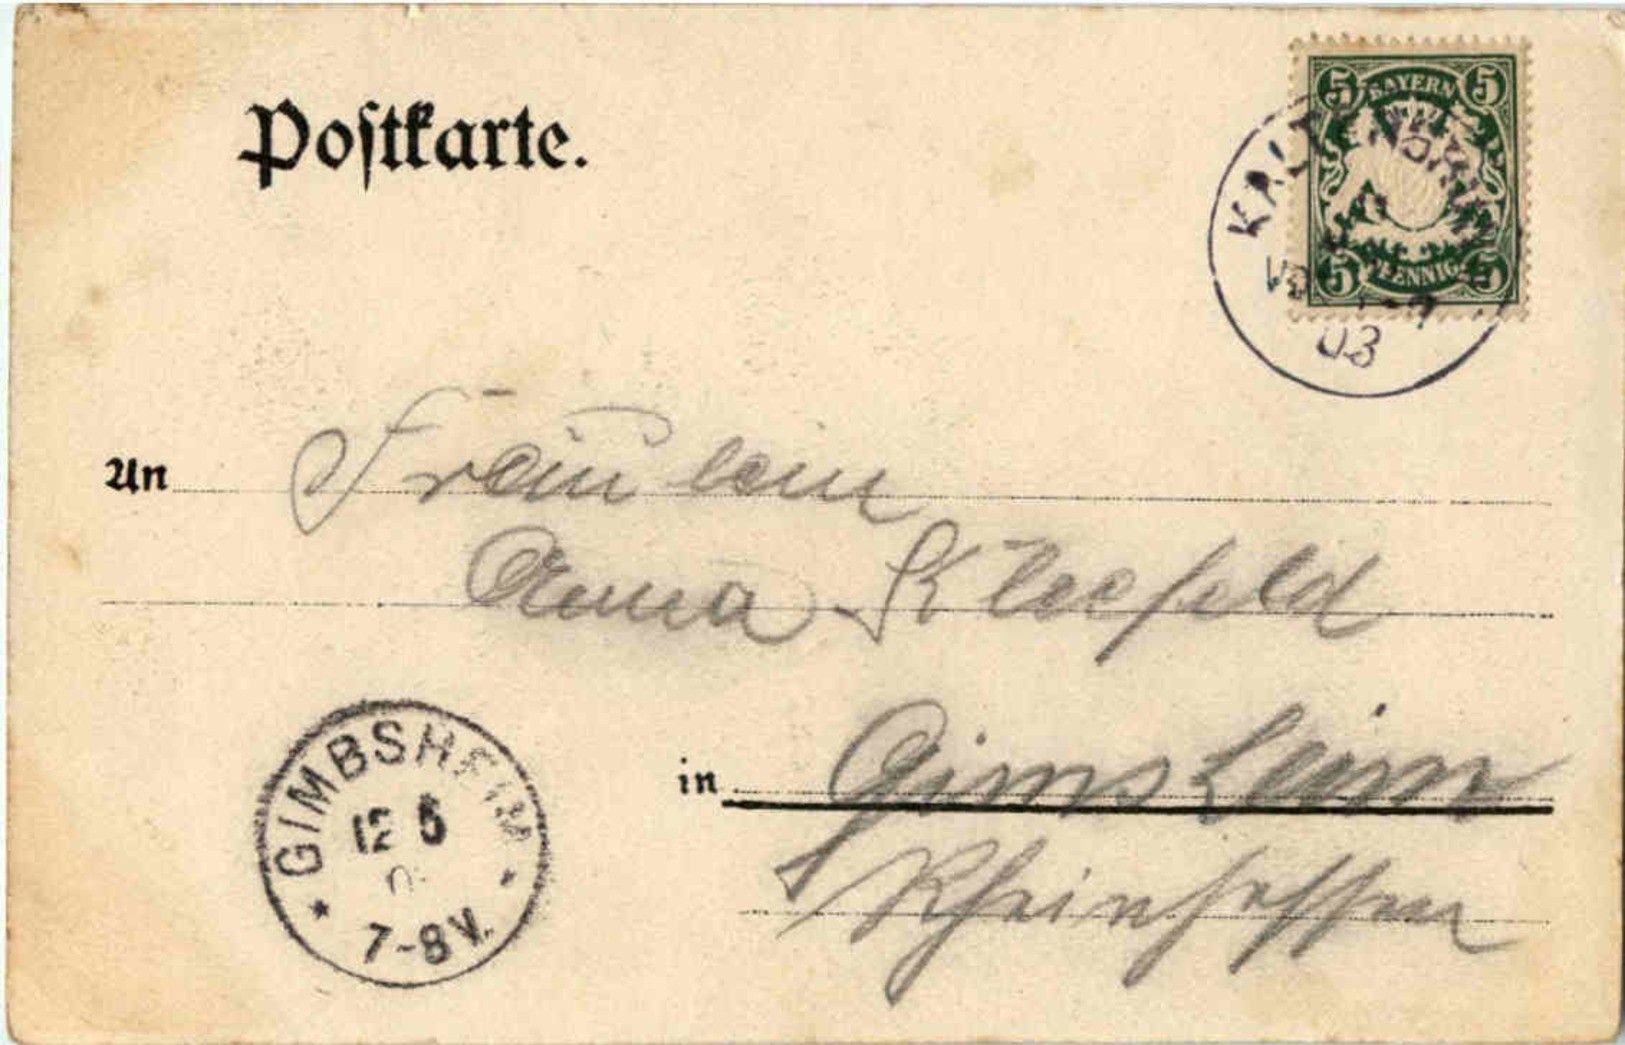 Postkarte.
BAYERN
5 5
5 PFENNIG 5
03
An Fräulein
Anna Kleefeld
GIMBSHEIM
12 5
7-8 V.
in Gimsheim
Rheinhessen